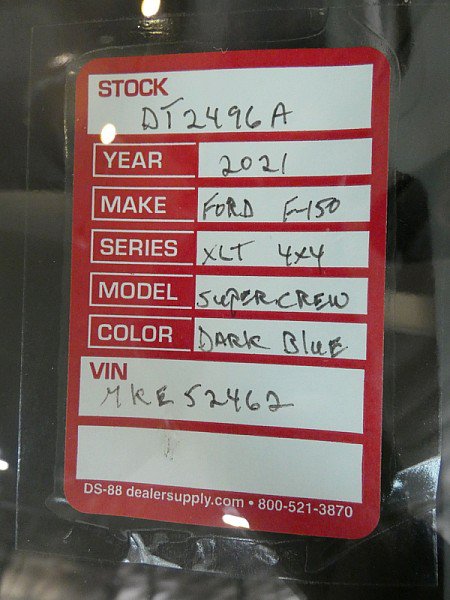 STOCK
DT2496A
YEAR 2021
MAKE FORD F-150
SERIES XLT 4x4
MODEL SUPERCREW
COLOR DARK BLUE
VIN
MKE52462
DS-88 dealersupply.com • 800-521-3870